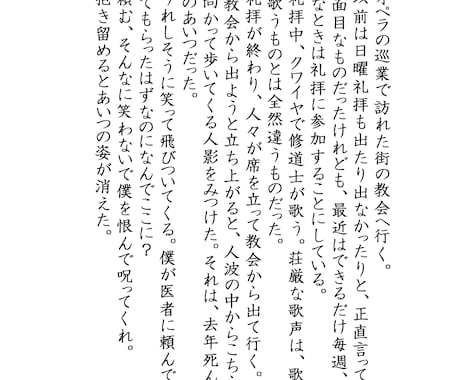 オペラの巡業で訪れた街の教会へ行く。
以前は日曜礼拝も出たり出なかったりと、正直言って
面目なものだったけれども、最近はできるだけ毎週、
なときは礼拝に参加することにしている。
礼拝中、クワイヤで修道士が歌う。荘厳な歌声は、歌
歌うものとは全然違うものだった。
礼拝が終わり、人々が席を立って教会から出て行く。
教会から出ようと立ち上がると、人波の中からこちら
向かって歩いてくる人影をみつけた。それは、去年死ん
のあいつだった。
うれしそうに笑って飛びついてくる。僕が医者に頼んで
てもらったはずなのになんでここに？
頼む、そんなに笑わないで僕を恨んで呪ってくれ。
抱き留めるとあいつの姿が消えた。